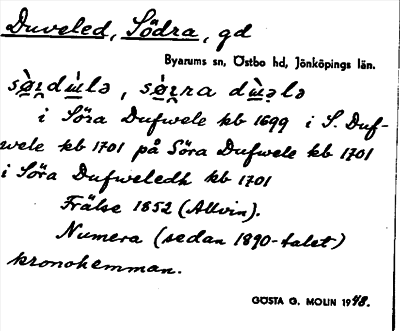 Duveled, Södra, gd
Byarums sn, Östbo hd, Jönköpings län.
i Söra Dufwele kb 1699 i S. Duf-
wele kb 1701 på Söra Dufwele kb 1701
i Söra Dufweledh kb 1701
Frälse 1852 (Allvin).
Numera (sedan 1890-talet)
kronohemman.
GÖSTA G. MOLIN 1948.